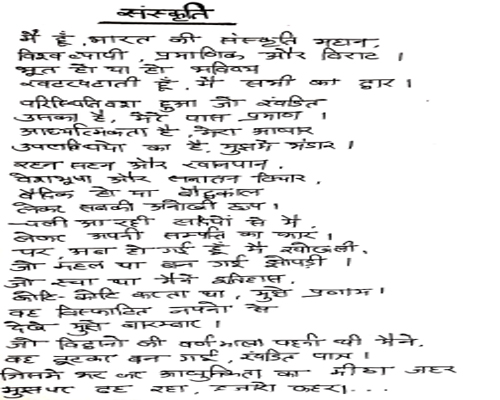 संस्कृति
मैं हूँ, भारत की संस्कृति महान,
विश्व व्यापी, प्रमाणिक और विराट ।
भूत हो या हो भविष्य
खटखटाती हूँ, मैं सभी का द्वार ।
परिस्थितिवश हुआ जो खंडित
उसका है, मेरे पास प्रमाण ।
आध्यात्मिकता है, मेरा आधार
उपलब्धियों का है, मुझमे भंडार ।
रहन सहन और खानपान,
वेशभूषा और सनातन विचार,
वैदिक हो या बौद्धकाल
लेकर सबकी अनोखी रूप ।
चली आ रही सदियों से मैं,
लेकर अपनी सम्पत्ति का भार,
पर, अब हो गई हूँ मैं खोखली,
जो महल था बन गई झोपड़ी ।
जो रचा था मैंने इतिहास,
कोटि-कोटि करता था, मुझे प्रणाम ।
वह विस्फारित नयनो से
देखे मुझे बारम्बार ।
जो विद्वानो की वर्णमाला पहनी थी मैंने,
वह टूटकर बन गई, खंडित पात्र ।
जिसमे भर कर आधुनिकता का मीठा जहर
मुझपर ढह रहा, हजारो कहर । . . .